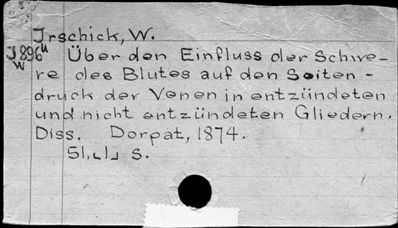 Irschick, W.
J896u
w
Über den Einfluss der Schwe-
re des Blutes auf den Seiten-
druck der Venen in entzündeten
und nicht entzündeten Gliedern.
Diss. Dorpat, 1874.
S.